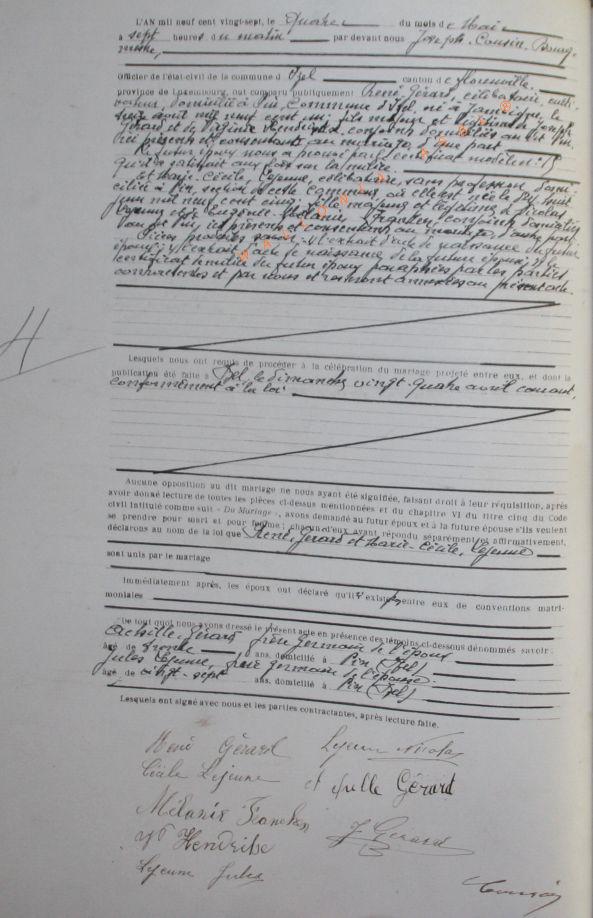 L'AN mil neuf cent vingt-sept, le quatre du mois de Mai
à sept heures du matin par devant nous Joseph Cousin, Bourg-
mestre,
Officier de l'état-civil de la commune d'Izel, canton de Florenville
province de Luxembourg, ont comparu publiquement René, Gérard, célibataire, culti-
vateur, domicilié à Pin, Commune d'Izel, né à Jamoigne, le
août mil neuf cent un, fils majeur et légitime de Joseph
Gérard et de conjoints domiciliés au dit Pin,
ici présents et consentants au mariage, d'une part
Le futur époux nous a prouvé par certificat modèle
qu'il a satisfait aux lois sur la milice
et Marie-Cécile, Lejeune, célibataire, sans profession, domi-
ciliée à Pin, section de cette commune, où elle est née le huit
juin mil neuf cent cinq, fille majeure et légitime de Nicolas
Lejeune et de Eugénie-Mélanie, conjoints domiciliés
au dit Pin, ici présents et consentants au mariage, d'autre part.
Pièces produites savoir: 1) extrait d'acte de naissance du futur
époux; 2) extrait d'acte de naissance de la future épouse; 3) le
certificat de milice du futur époux paraphées par les parties
contractantes et par nous et resteront annexées au présent acte.
Lesquels nous ont requis de procéder à la célébration du mariage projeté entre eux, et dont la
publication été faite à Izel, le dimanche vingt-quatre avril courant,
conformément à la loi
Aucune opposition au dit mariage ne nous ayant été signifiée, faisant droit à leur réquisition, après
avoir donné lecture de toutes les pièces ci-dessus mentionnées et du chapitre VI du titre cinq du Code
civil intitulé comme suit « Du Mariage », avons demandé au futur époux et à la future épouse s'ils veulent
se prendre pour mari et pour femme; chacun d'eux ayant répondu séparément et affirmativement,
déclarons au nom de la loi que René, Gérard et Marie-Cécile, Lejeune
sont unis par le mariage
Immédiatement après, les époux ont déclaré qu'il n'existe pas entre eux de conventions matri-
moniales
De tout quoi nous avons dressé le présent acte en présence des témoins ci-dessous dénommés savoir:
Achille, Gérard, frère germain de l'époux
âgé de trente ans, domicilié à Pin (Izel)
Jules Lejeune, frère germain de l'épouse
âgé de vingt-sept ans, domicilié à Pin (Izel)
Lesquels ont signé avec nous et les parties contractantes, après lecture faite.
René Gérard Lejeune Nicolas
Cécile Lejeune Gérard
Mélanie
J Gerard
Lejeune Jules
Cousin